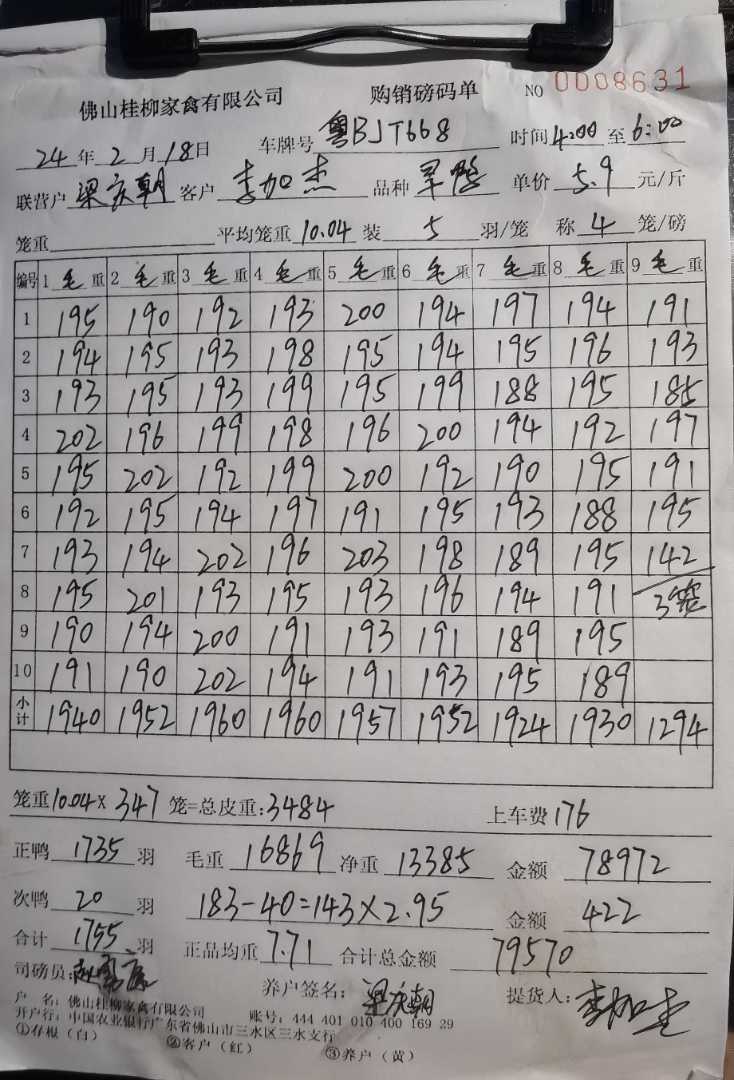 佛山桂柳家禽有限公司 购销磅码单 NO 0008631
24年2月18日 车牌号 粤BJT668 时间4:00至6:00
联营户 梁庆朝 客户 李加杰 品种 旱鸭 单价 5.9 元/斤
笼重 平均笼重 10.04 装 5 羽/笼 称 4 笼/磅
编号 1 毛重 2 毛重 3 毛重 4 毛重 5 毛重 6 毛重 7 毛重 8 毛重 9 毛重
1 195 190 192 193 200 194 197 194 191
2 194 195 193 198 195 194 195 196 193
3 193 195 193 199 195 199 188 195 185
4 202 196 199 198 196 200 194 192 197
5 195 202 192 199 200 192 190 195 191
6 192 195 194 197 191 195 193 188 195
7 193 194 202 196 203 198 189 195 142
8 195 201 193 195 193 196 194 191 3笼
9 190 194 200 191 193 191 189 195
10 191 190 202 194 191 193 195 189
小计 1940 1952 1960 1960 1957 1952 1924 1930 1294
笼重10.04×347笼=总皮重:3484 上车费176
正鸭 1735 羽 毛重 16869 净重 13385 金额 78972
次鸭 20 羽 183-40=143×2.95 金额 422
合计 1755 羽 正品均重 7.71 合计总金额 79570
司磅员: 养户签名: 梁庆朝 提货人: 李加杰
户 名: 佛山桂柳家禽有限公司 账号: 444 401 010 400 169 29
开户行: 中国农业银行广东省佛山市三水区三水支行
①存根(白) ②客户(红) ③养户(黄)